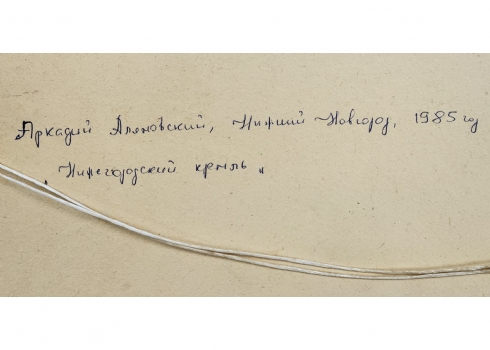 Аркадий Алёновский, Нижний Новгород, 1985 год
„Нижегородский кремль„